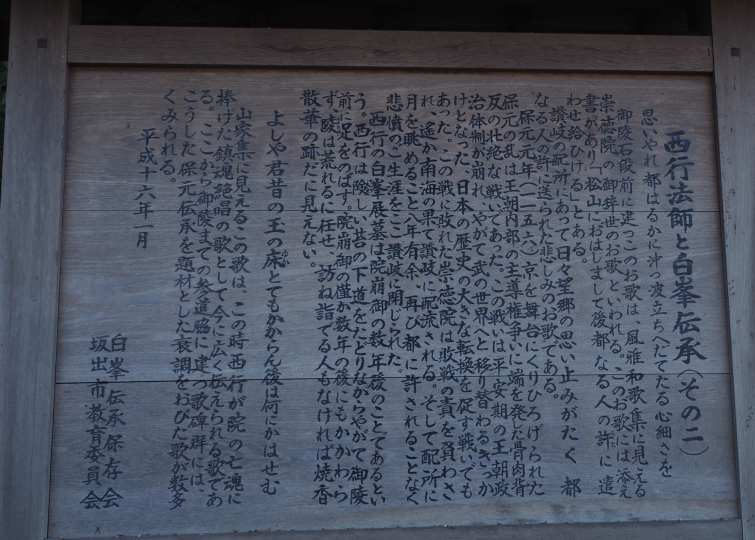 西行法師と白峯伝承(その二)
思いやれ都はるかに沖つ波立ちへだてたる心細さを
御陵石段前に建つこのお歌は、風雅和歌集に見える
崇徳院の御辞世のお歌といわれる。このお歌には添え
書があり「松山におはしまして後都なる人の許に遣
わせ給ひける」とある。
讃岐の配所にあって日々望郷の思い止みがたく 都
なる人の許に送られた悲しみのお歌である。
保元元年(一一五六)京を舞台にくりひろげられた
保元の乱は王朝内部の主導権争いに端を発した骨肉背
反の壮絶な戦いであった。この戦いは平安期の王朝政
治体制が崩れ、やがて武の世界へと移り替わるきっか
けとなった。日本の歴史の大きな転換を促す戦いでも
あった。この戦に敗れた崇徳院は敗戦の責を負わさ
れ、遥か南海の果て讃岐に配流される。そして配所に
月を眺めること八年有余、再び都に許されることなく
悲憤のご生涯をここ讃岐に閉じられた。
西行の白峯展墓は院崩御の数年後のことであるとい
う。西行は険しい苔の下道をたどりながらやがて御陵
前に足をのばす。院崩御の僅か数年の後にもかかわら
ず、陵は荒れるに任せ、訪ね詣でる人もなければ焼香
散華の跡だに見えない。
よしや君昔の王の床とてもかからん後は何にかはせむ
とこ
山家集に見えるこの歌は、この時西行が院の亡魂に
捧げた鎮魂絶唱の歌として今に広く伝えられる歌であ
る。ここから御陵までの参道脇に建つ歌碑群には、
こうした保元伝承を題材とした哀調をおびた歌が数多
くみられる。
平成十六年一月
白峯伝承保存会
坂出市教育委員会